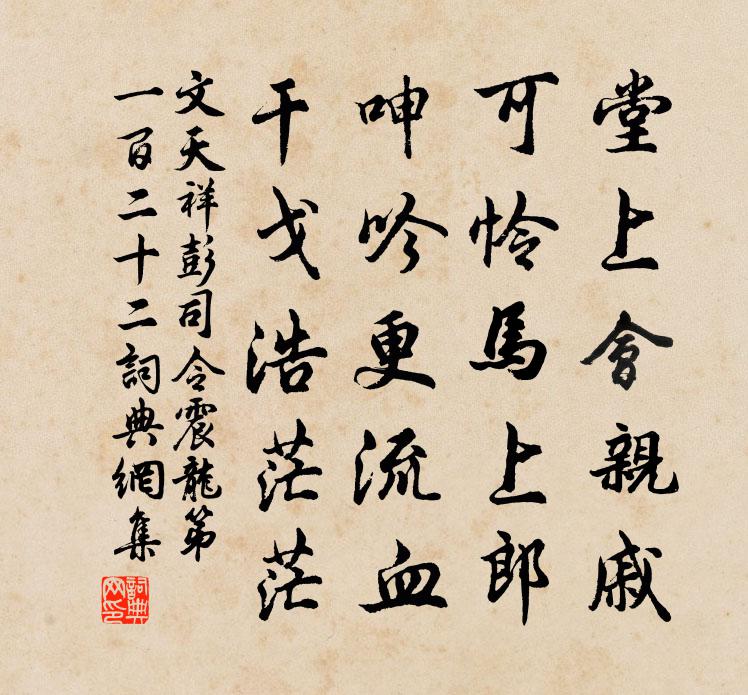 堂上會親戚
可怜馬上郎
呻吟更流血
干戈浩茫茫
文天祥彭司令震龍第
一百二十二詞典網集
詞典網印